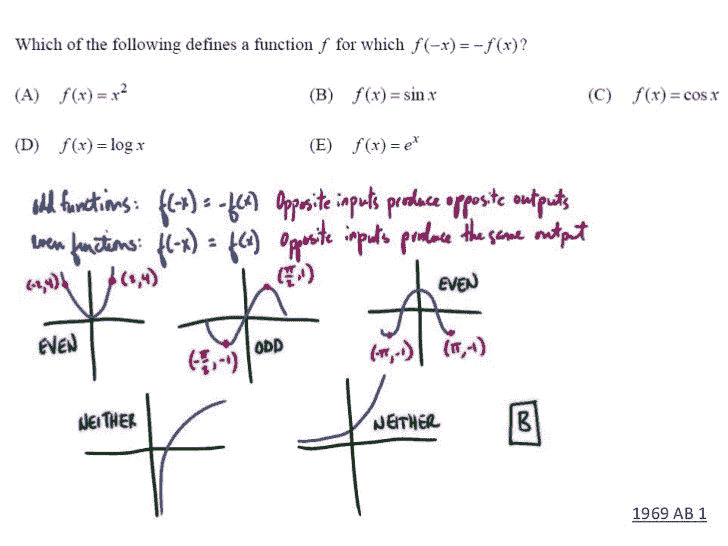 Which of the following defines a function f for which f(−x) = −f(x)?
(A) f(x) = x² (B) f(x) = sin x (C) f(x) = cos x
(D) f(x) = log x (E) f(x) = eˣ
odd functions: f(-x) = -f(x) Opposite inputs produce opposite outputs
even functions: f(-x) = f(x) Opposite inputs produce the same output
(-2,4) (2,4) (π/2,1) EVEN
EVEN (-π/2,-1) ODD (-π,-1) (π,-1)
NEITHER NEITHER B
1969 AB 1